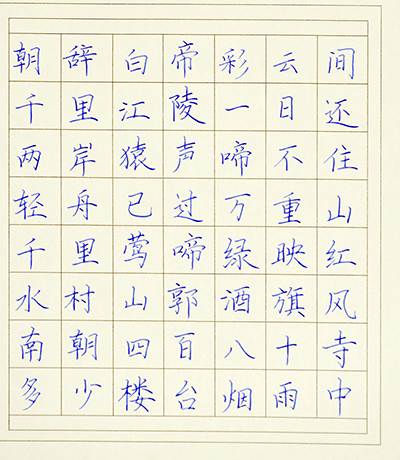 朝辞白帝彩云间
千里江陵一日还
两岸猿声啼不住
轻舟已过万重山
千里莺啼绿映红
水村山郭酒旗风
南朝四百八十寺
多少楼台烟雨中